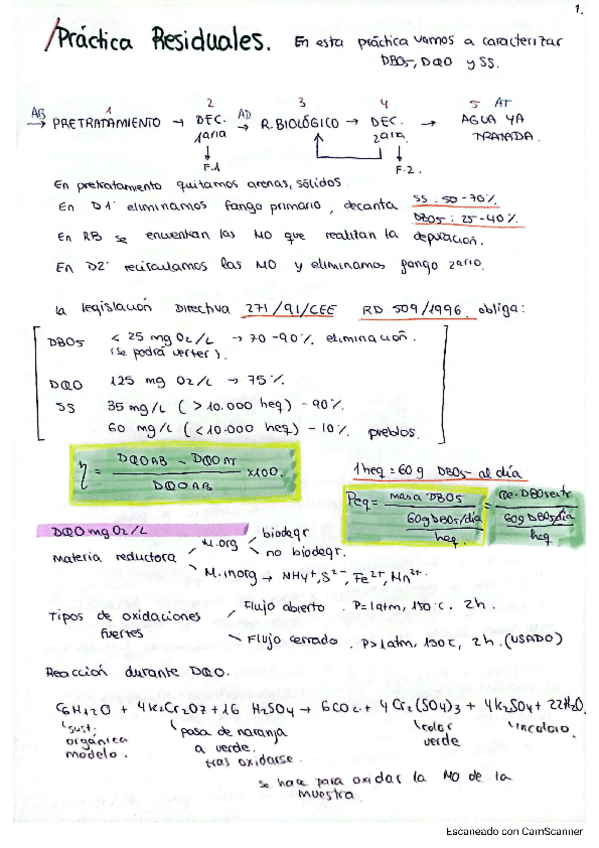 1.
Práctica Residuales. En esta práctica vamos a caracterizar
DBO5, DQO y SS.
1 2 3 4 5 AT
AB → PRETRATAMIENTO → DEC. 1aria AD → R. BIOLÓGICO → DEC. 2aria → AGUA YA TRATADA.
F.1 F.2.
En pretratamiento quitamos arenas, sólidos.
En D1' eliminamos fango primario, decanta SS: 50-70%
DBO5: 25-40%
En RB se encuentran las MO que realizan la depuración.
En D2' recirculamos las MO y eliminamos fango 2ario.
La legislación Directiva 271/91/CEE RD 509/1996 obliga:
DBO5 < 25 mg O2/L → 70-90% eliminación.
(se podrá verter).
DQO 125 mg O2/L → 75%.
SS 35 mg/L (> 10.000 heq) - 90%.
60 mg/L (< 10.000 heq) - 70%. pueblos.
η = DQO AB - DQO AT / DQO AB x100.
1 heq = 60 g DBO5 al día
Peq = masa DBO5 / 60g DBO5/día / heq = Qe. DBO5entr / 60g DBO5/día / heq
DQO mg O2/L
materia reductora M.org biodegr
no biodegr.
M.inorg → NH4+, S2-, Fe2+, Mn2+.
Tipos de oxidaciones fuertes Flujo abierto. P=1atm, 150°C. 2h.
Flujo cerrado. P>1atm, 150°C, 2h. (USADO)
Reacción durante DQO.
C6H12O + 4K2Cr2O7 + 16 H2SO4 → 6CO2 + 4Cr2(SO4)3 + 4K2SO4 + 22H2O.
sust. orgánica modelo.
pasa de naranja a verde. tras oxidarse.
color verde
incoloro.
se hace para oxidar la MO de la
muestra.
Escaneado con CamScanner